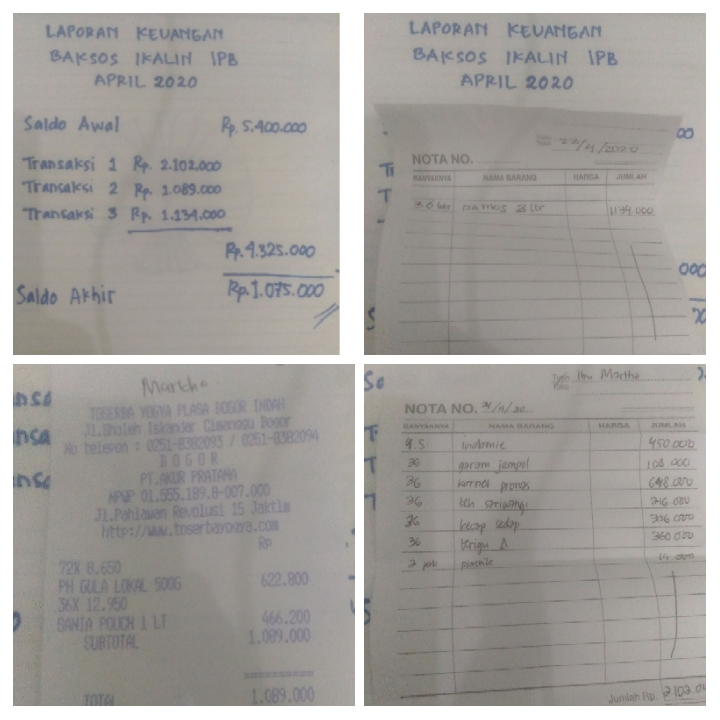 LAPORAN KEUANGAN
BAKSOS IKALIN IPB
APRIL 2020
Saldo Awal Rp. 5.400.000
Transaksi 1 Rp. 2.102.000
Transaksi 2 Rp. 1.089.000
Transaksi 3 Rp. 1.134.000
Rp. 4.325.000
Saldo Akhir Rp. 1.075.000
LAPORAN KEUANGAN
BAKSOS IKALIN IPB
APRIL 2020
22/4/2020
NOTA NO.
BANYAKNYA NAMA BARANG HARGA JUMLAH
1134.000
Martha
TOSERBA YOGYA PLASA BOGOR INDAH
Jl.Sholeh Iskandar Cimanggu Bogor
No telepon : 0251-8382093 / 0251-8382094
B O G O R
PT.AKUR PRATAMA
NPWP 01.555.189.8-007.000
Jl.Pahlawan Revolusi 15 Jaktim
http://www.toserbayogya.com
Rp
72X 8.650
PH GULA LOKAL 500G 622.800
36X 12.950
SANIA POUCH 1 LT 466.200
SUBTOTAL 1.089.000
TOTAL 1.089.000
Tuan Ibu Martha
Toko
NOTA NO.
BANYAKNYA NAMA BARANG HARGA JUMLAH
4.5 indomie 450.000
36 garam 108.000
36 648.000
36 teh 216.000
36 kecap sedap
36 terigu 360.000
2 14.000
Jumlah Rp. 2102.0